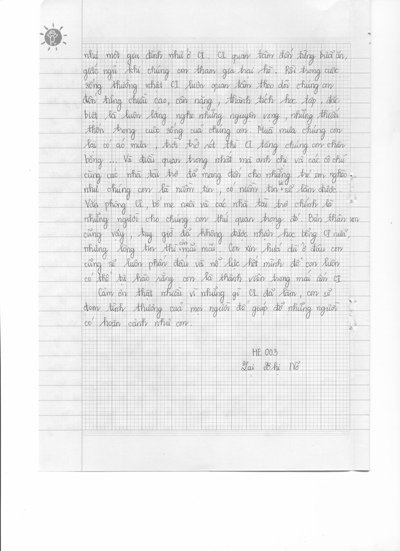 như một gia đình nhỏ ở CI. CI quan tâm đến từng bữa ăn,
giấc ngủ khi chúng con tham gia trại hè. Rồi trong cuộc
sống thường nhật CI luôn quan tâm theo dõi chúng con
đến từng chiều cao, cân nặng, thành tích học tập, đặc
biệt là luôn lắng nghe những nguyện vọng, những thiếu
thốn trong cuộc sống của chúng con. Mùa mưa chúng con
lại có áo mưa, trời trở rét thì CI tặng chúng con chăn
bông ... Và điều quan trọng nhất mà anh chị và các cô chú
cùng các nhà tài trợ đã mang đến cho những trẻ em nghèo
như chúng con là niềm tin, có niềm tin sẽ làm được.
Văn phòng CI, bố mẹ nuôi và các nhà tài trợ chính là
những người cho chúng con thứ quan trọng đó. Bản thân con
cũng vậy, tuy giờ đã không được nhận học bổng CI nữa,
nhưng lòng tin thì mãi mãi. Con xin hứa dù ở đâu con
cũng sẽ luôn phấn đấu và nỗ lực hết mình để con luôn
có thể tự hào rằng con là thành viên trong mái ấm CI.
Cảm ơn thật nhiều vì những gì CI đã làm, con sẽ
đem tình thương của mọi người để giúp đỡ những người
có hoàn cảnh như con.
HE 003
Lại Thị Nở